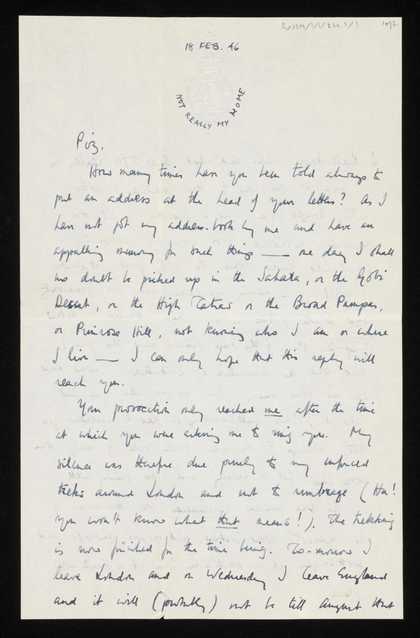 18 FEB. 46
NOT REALLY MY HOME
Piz.
How many times have you been told always to
put an address at the head of your letters? As I
have not got my address-book by me and have an
appalling memory for such things — one day I shall
no doubt be picked up in the Sahara, or the Gobi
Desert, or the High Tatras or the Broad Pampas,
or Primrose Hill, not knowing who I am or where
I live — I can only hope that this reply will
reach you.
Your provocation only reached me after the time
at which you were asking me to ring you. My
silence was therefore due purely to my enforced
treks around London and not to umbrage (Ha!
You won't know what that means!). The trekking
is now finished for the time being. To-morrow I
leave London and on Wednesday I leave England
and it will (probably) not be till August that